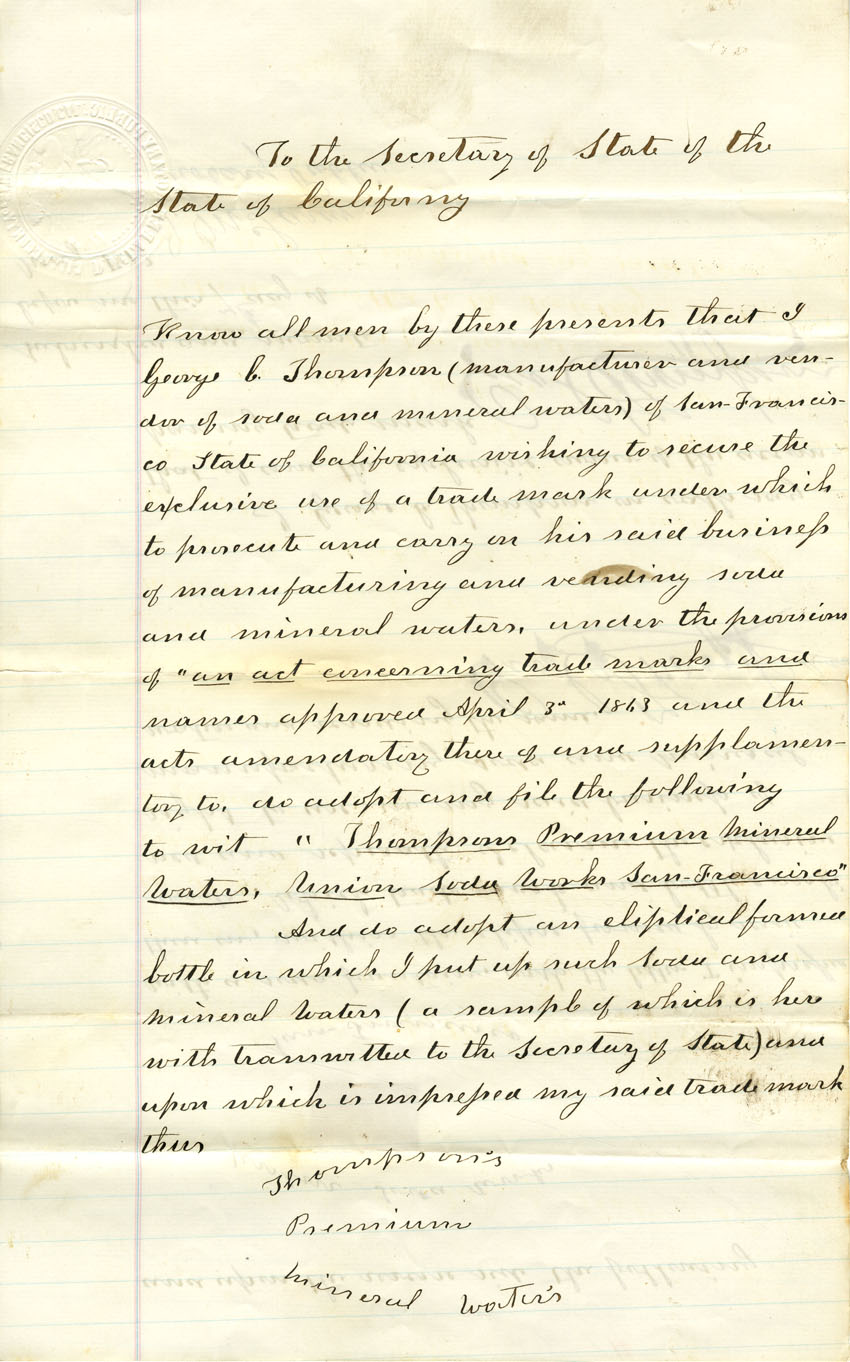 To the Secretary of State of the
State of Californy
Know all men by these presents that I
George C. Thompson (manufacturer and ven-
dor of soda and mineral waters) of San-Francis-
co State of California wishing to secure the
exclusive use of a trade mark under which
to prosecute and carry on his said business
of manufacturing and vending soda
and mineral waters, under the provisions
of "an act concerning trade marks and
names approved April 3d 1863 and the
acts amendatory there of and supplamen-
tory to, do adopt and file the following
to wit " Thompsons Premium Mineral
Waters, Union Soda Works San-Francisco"
And do adopt an eliptical formed
bottle in which I put up such Soda and
Mineral Waters (a sample of which is here
with transmitted to the Secretary of State) and
upon which is impressed my said trade mark
thus
Thompson's
Premium
Mineral Water's